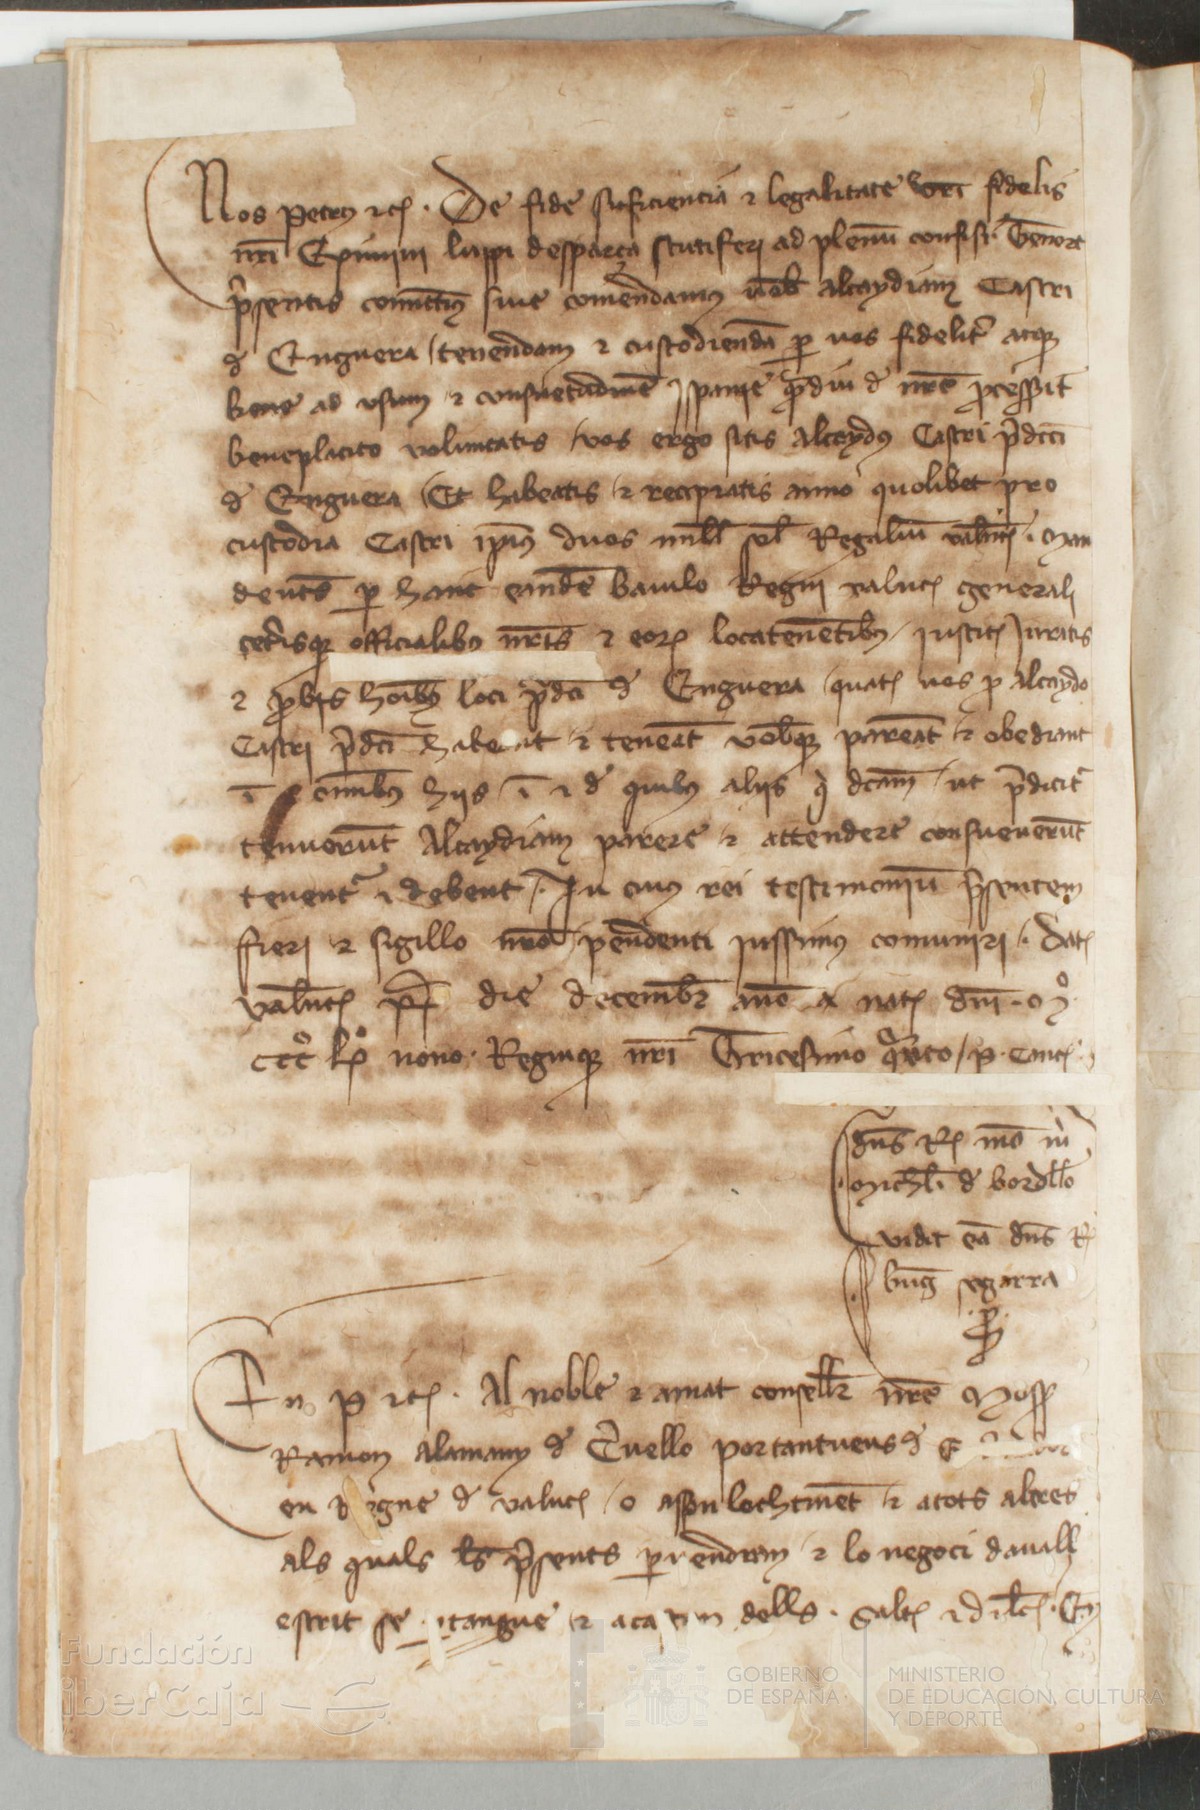 Nos Petrus etc. De fide suficiencia et legalitate vestri fidelis
nri Eximini luppi desparça scutiferi ad plenu confisi Tenore
psentis comittimus sive comendamus vob alcaydiam Castri
de Enguera tenendam et custodienda per vos fideliter atque
bene ad usum et consuetudine Ispanie quamdiu de nre processerit
beneplacito voluntatis vos ergo sitis Alcaydus Castri pdicti
de Enguera Et habeatis et recipiatis anno quolibet pro
custodia Castri ipius duos mill sol Regaliu valencie Man
dentes per hanc eande baiulo Regni valencie generali
ceterisque officialibus nris et eorum locatenentibus justicie Juratis
et probis hoibus loci pdci de Enguera quatenus vos pro Alcaydo
Castri pdci habeant et teneat vobisque pareat et obediant
in omnibus hiis in et de quibus aliis qui dcam ut pdicitur
tenuerut Alcaydiam parere et attendere consueverut
tenentur et debent. In cuius rei testimoniu psentem
fieri et sigillo nro pendenti jussimus comuniri. Dat
Valencie die decembr anno a nat dni Mº
CCCº LXº nono. Regnique nri Tricesimo quarto
dns Rex
de bordello
vidit ea dns Rex
segarra
En P etc. Al noble et amat conseller nre Mossen
Ramon Alamany de Cervello portantveus de
en Regne de Valencia o asson lochtinent et atots altres
als quals les psents pervendram et lo negoci davall
escrit se pertangue et acascun dells. Salut et dileccio. En
Fundación
iberCaja
GOBIERNO
DE ESPAÑA
MINISTERIO
DE EDUCACIÓN, CULTURA
Y DEPORTE